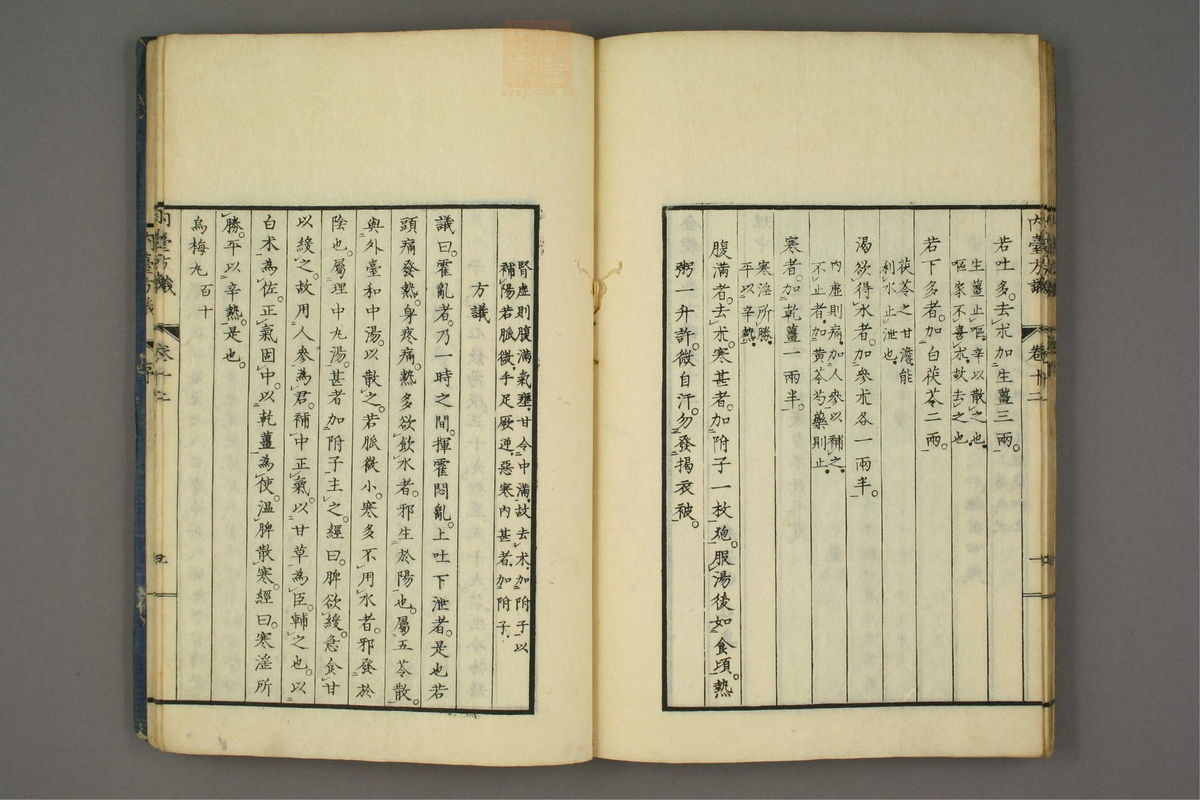 內臺方議 卷十二
若吐多。去朮加生薑三兩。
生薑止嘔。辛以散之也。
嘔家不喜朮。故去之也
若下多者。加白茯苓二兩。
茯苓之甘澹。能
利水止泄也。
渴欲得水者。加參朮各一兩半。
內虛則痛。加人參以補之。
不止者。加黄芩芍藥則止。
寒者。加乾薑一兩半。
寒淫所勝。
平以辛熱。
腹滿者。去朮。寒甚者。加附子一枚炮。服湯後如食頃。熱
粥一升許。微自汗。勿發揭衣被。
腎虛則腹滿氣壅。甘令中滿。故去朮。加附子以
補陽若脈微。手足厥逆。惡寒內甚者。加附子。
方議
議曰。霍亂者。乃一時之間。揮霍悶亂。上吐下泄者。是也若
頭痛發熱。身疼痛。熱多欲飲水者。邪生於陽也。屬五苓散。
與外臺和中湯。以散之。若脈微小。寒多不用水者。邪發於
陰也。屬理中丸湯。甚者加附子主之。經曰。脾欲緩。急食甘
以緩之。故用人參為君。補中正氣。以甘草為臣。輔之也。以
白朮為佐。正氣固中。以乾薑為使。溫脾散寒。經曰。寒淫所
勝。平以辛熱。是也。
烏梅丸百十